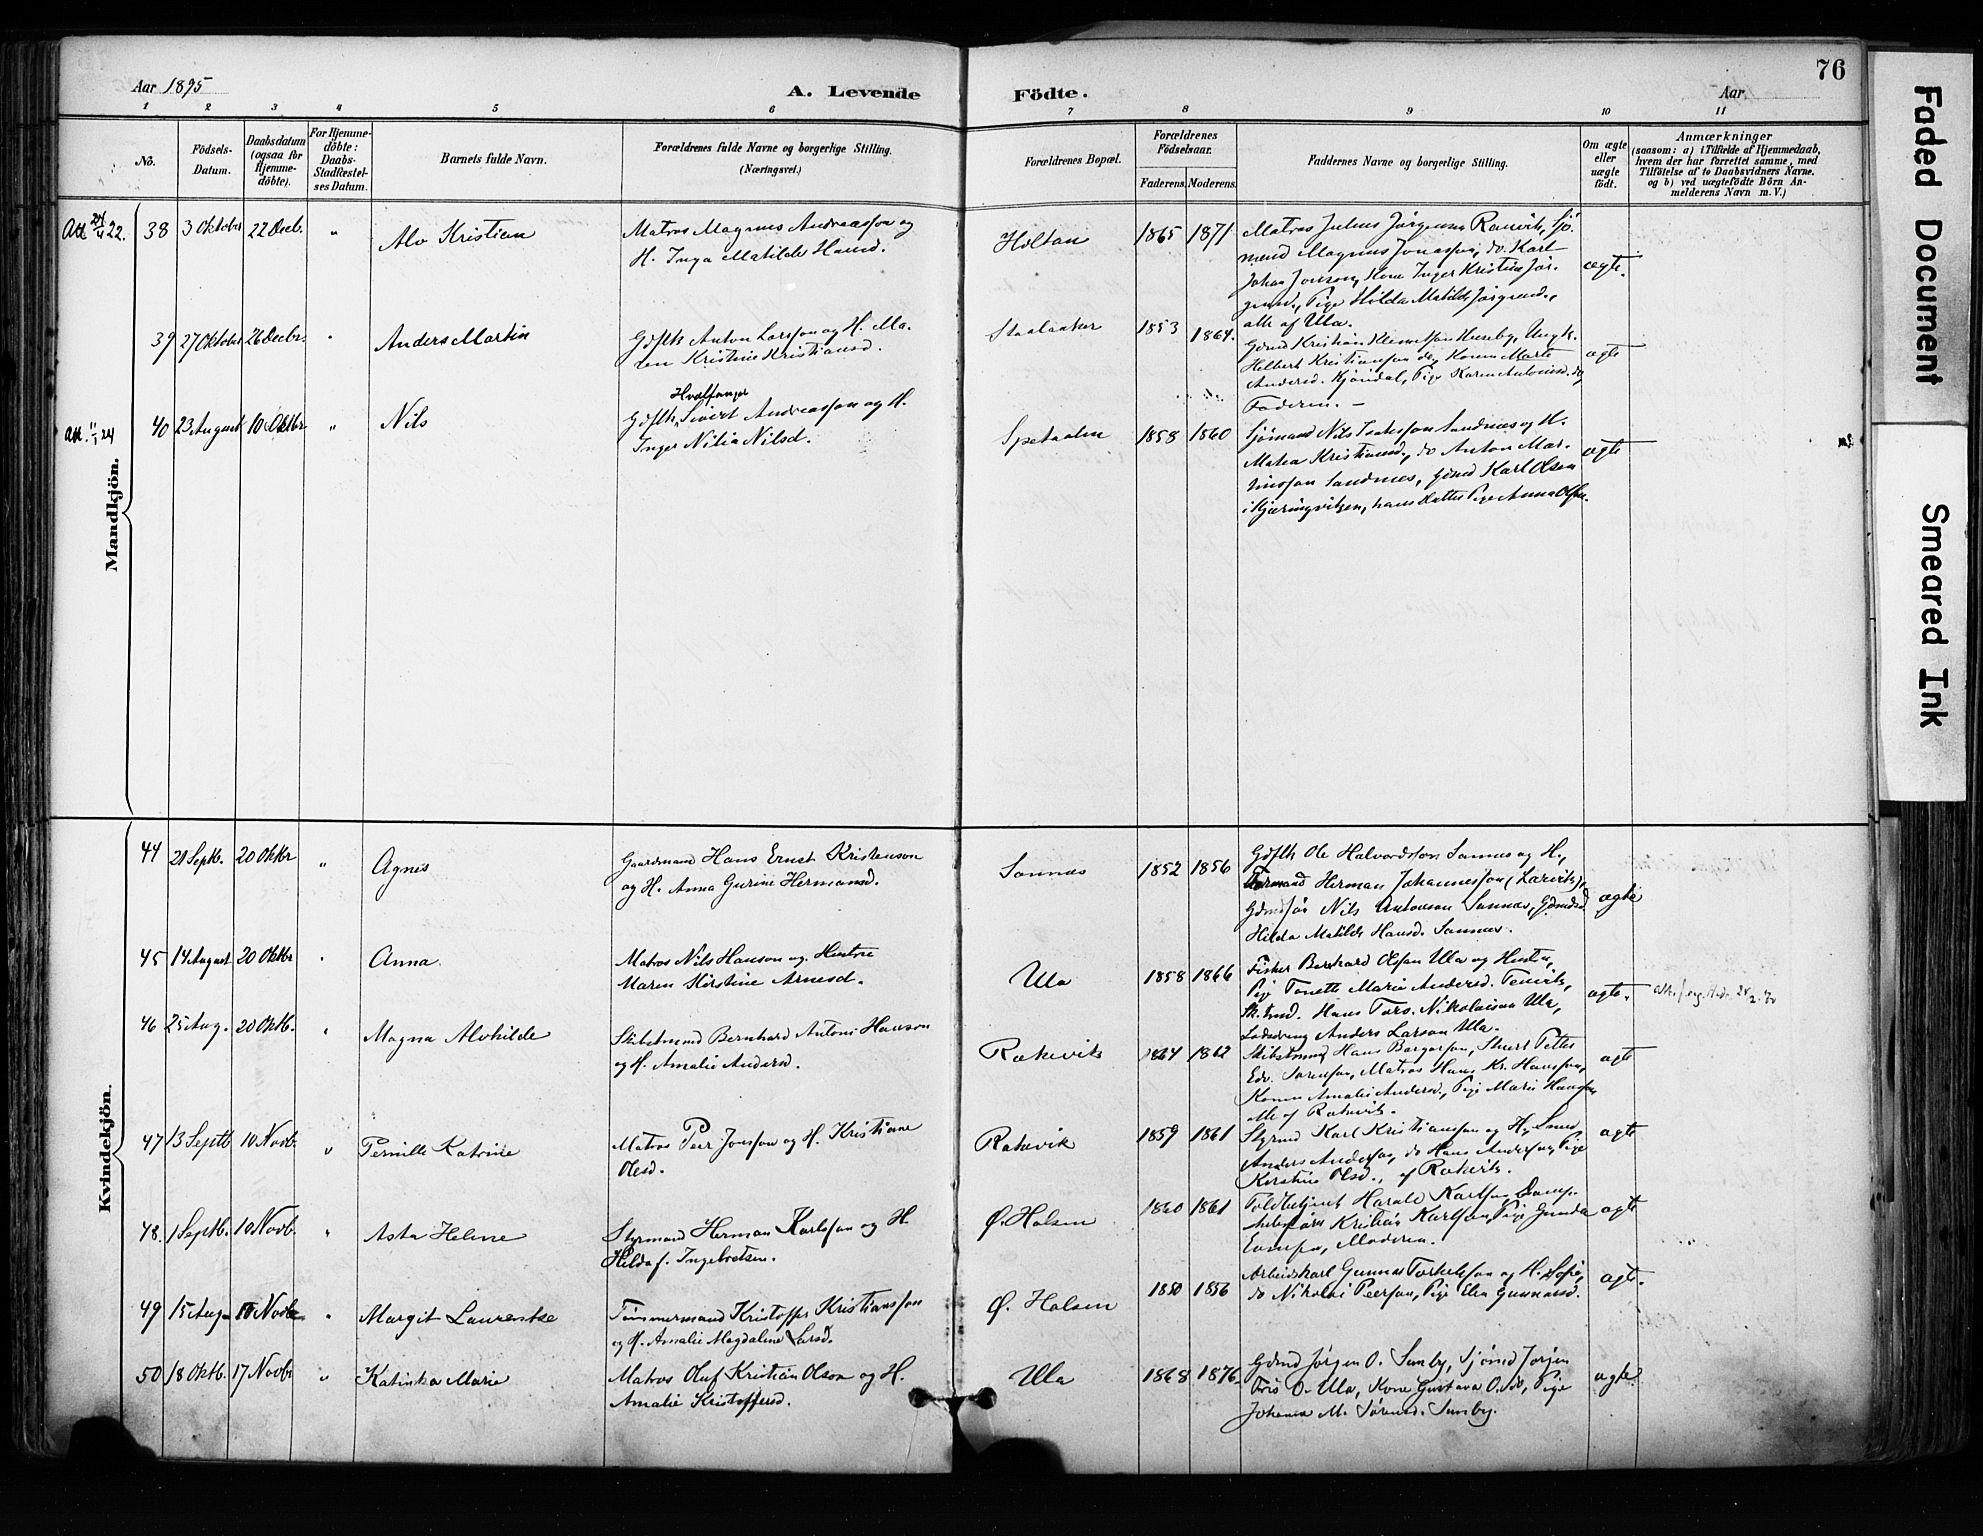 76
Aar 1895
A. Levende Födte.
Aar
1 2 3 4 5 6 7 8 9 10 11
No.
Födsels-Datum.
Daabsdatum (ogsaa for Hjemme-döbte).
For Hjemme-döbte: Daabs-Stadfæstel-ses Datum.
Barnets fulde Navn.
Forældrenes fulde Navne og borgerlige Stilling.
(Næringsvei.)
Forældrenes Bopæl.
Forældrenes Födselsaar.
Faderens. Moderens.
Faddernes Navne og borgerlige Stilling.
Om ægte eller uægte födt.
Anmærkninger
(saasom: a) i Tilfælde af Hjemmedaab,
hvem der har forrettet samme, med
Tilföielse af to Daabsvidners Navne.
og b) ved uægtefödte Börn An-
melderens Navn m. V.)
Mandkjön.
38 3 Oktober 22 Decb. " Alv Kristian
Matros Magnus Andreassøn og
H. Inga Matilde Hansd.
Holtan 1865 1871
Matros Julius Jørgensen Rauvik, Sjö-
mand Magnus Jonassøn, do Karl
Johan Jonsson, Kone Inger Kristine Jör-
gensd., Pige Hilda Matilde Jörgensd.,
alle af Ula.
ægte.
39 27 Oktober 26 Decbr. " Anders Martin
Gdfstk. Anton Larssøn og H. Ma-
ren Kristine Kristiansd.
1853 1864.
Helbert Kristianssøn do, Konen Marte
Andersd. Kjöndal, Pige Karen Antonsd. do,
Faderen. –
ægte
Att. 11/1 24
40 23 August 10 Oktbr " Nils
Hvalfanger
Gdfstk. Sivert Andreassøn og H.
Inger Nilia Nilsd.
Spetaalen 1858 1860
Sjömand Nils Isaksson Sandnæs og H.
Matea Kristiansd., do Anton Mar-
tinssøn Sandnæs, Gdmd Karl Olsen
i Kjæringvigen, hans Datter Pige Anna Olsen.
ægte
Kvindekjön.
44 21 Septb. 20 Oktbr " Agnes
Gaardmand Hans Ernst Kristenson
og H. Anna Gurine Hermansd.
Sannæs 1852 1856
Gdfstk Ole Halvordssøn Sannæs og H.,
Formand Herman Johannessøn (Larvik),
Nils Antonson Sannæs,
Hilda Matilde Hansd. Sannæs.
ægte
45 14 August 20 Oktbr " Anna
Matros Nils Hanson og Hustru
Maren Kirstine Arnesd.
Ula 1858 1866
Fisker Bernhard Olssøn Ula og Hustru,
Pige Tonette Marie Andersd. Tenvik,
Hans Tors. Nikolaisen Ula,
Lodsdreng Anders Larson Ula.
ægte.
46 25 Aug. 20 Oktb. " Magna Alvhilde
Skibstmand Bernhard Antoni Hanson
og H. Amalie Andersd.
Rækevik 1864 1862
Skibstmmd Hans Borgersøn, Stuert Petter
Edv. Sørensøn, Matros Hans Kr. Hanssøn,
Konen Amalie Andersd., Pige Marie Hanssen
alle af Rækevik.
ægte
47 13 Septb 10 Novb. " Pernille Katrine
Matros Peer Jonssøn og H. Kristiane
Olesd.
Rækevik 1859 1861
Styrmd Karl Kristianssøn og H., Smed
Anders Anderssøn, do Hans Anderssøn, Pige
Kirstine Olsd., af Rækevik.
ægte
48. 1 Septb. 10 Novb. " Asta Helene
Styrmand Herman Karlssøn og H.
Hilda f. Ingebretsen.
Ø. Halsen 1860 1861
Toldbetjent Harald Karlssøn,
Kristian Karlssøn, Pige Gunda
Moderen.
ægte
49 15 Aug 10 Novb " Margit Laurentze
Tömmermand Kristoffer Kristianssøn
og H. Amalie Magdalene Larsd.
Ø. Halsen 1850 1856
Arbeidskarl Gunnar Torkelssøn og H. Sofie,
do Nikolai Peersøn, Pige Elen Gunnarsd.
ægte.
50 18 Oktb. 17 Novbr " Katinka Marie
Matros Oluf Kristian Olson og H.
Amalie Kristoffersd.
Ula 1868 1876
Gdmd Jørgen O. Sunby, Sjömd Jörgen
O. Ula, Kone Gustava O. do, Pige
Johanna M. Sörensd. Sunby.
ægte
Faded Document
Smeared Ink